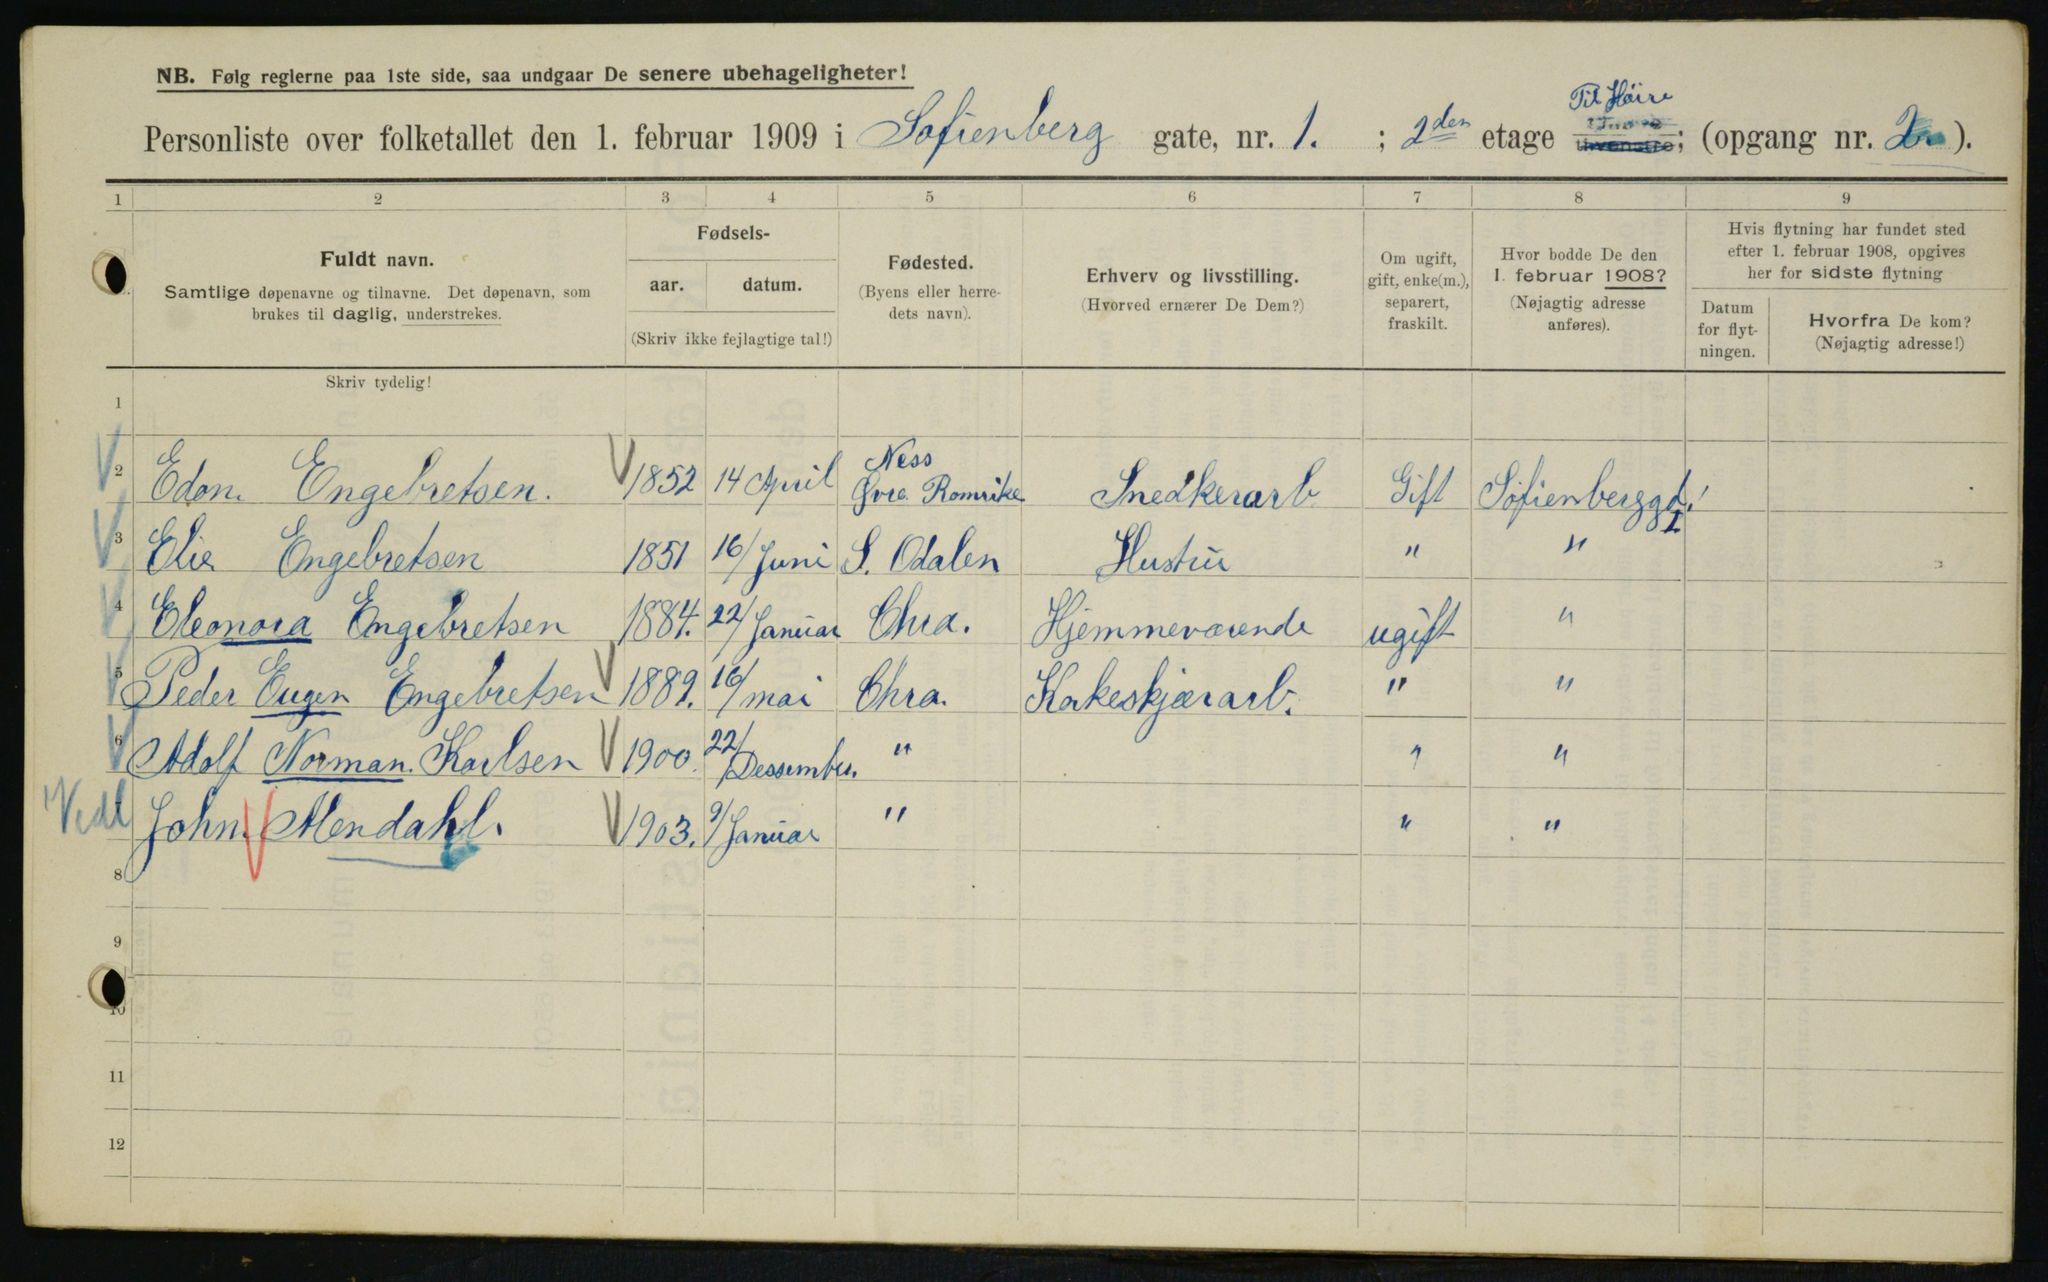 NB. Følg reglerne paa 1ste side, saa undgaar De senere ubehageligheter!
Til Høire
Personliste over folketallet den 1. februar 1909 i Sofienberg gate, nr. 1. ; 2den etage ; (opgang nr. 2 ).
1 2 3 4 5 6 7 8 9
Fuldt navn.
Samtlige døpenavne og tilnavne. Det døpenavn, som
brukes til daglig, understrekes.
Fødsels-
aar. datum.
(Skriv ikke fejlagtige tal!)
Fødested.
(Byens eller herre-
dets navn).
Erhverv og livsstilling.
(Hvorved ernærer De Dem?)
Om ugift,
gift, enke(m.),
separert,
fraskilt.
Hvor bodde De den
1. februar 1908?
(Nøjagtig adresse
anføres).
Hvis flytning har fundet sted
efter 1. februar 1908, opgives
her for sidste flytning
Datum
for flyt-
ningen.
Hvorfra De kom?
(Nøjagtig adresse!)
Skriv tydelig!
1
2 Edon. Engebretsen. 1852 14 April Ness Øvre Romrike Snedkerarb Gift Sofienberggd. 1
3 Elie Engebretsen 1851 16/Juni S. Odalen Hustru " "
4 Eleonora Engebretsen 1884. 22/Januar Chra. Hjemmeværende ugift "
5 Peder Eugen Engebretsen 1889. 16/mai Chra. Korkeskjærarb. " "
6 Adolf Norman. Karlsen 1900. 22/Dessember. " " "
Vedl 7 John. Mendahl. 1903. 9/Januar " " "
8
9
10
11
12